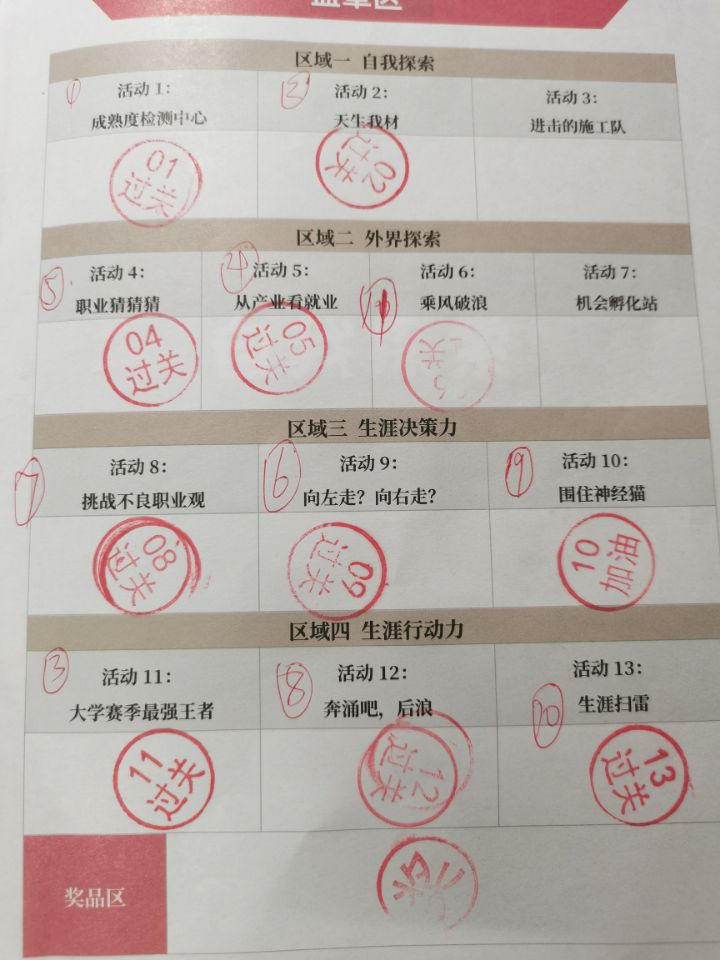 盖章区
区域一 自我探索
① 活动 1: ② 活动 2: 活动 3:
成熟度检测中心 天生我材 进击的施工队
01 过关 02 过关
区域二 外界探索
⑤ 活动 4: ④ 活动 5: 活动 6: 活动 7:
职业猜猜猜 从产业看就业 乘风破浪 机会孵化站
04 过关 05 过关 过关
区域三 生涯决策力
⑦ 活动 8: ⑥ 活动 9: ⑨ 活动 10:
挑战不良职业观 向左走? 向右走? 围住神经猫
08 过关 09 过关 10 加油
区域四 生涯行动力
③ 活动 11: ⑧ 活动 12: 活动 13:
大学赛季最强王者 奔涌吧, 后浪 ⑩ 生涯扫雷
11 过关 12 过关 13 过关
奖品区